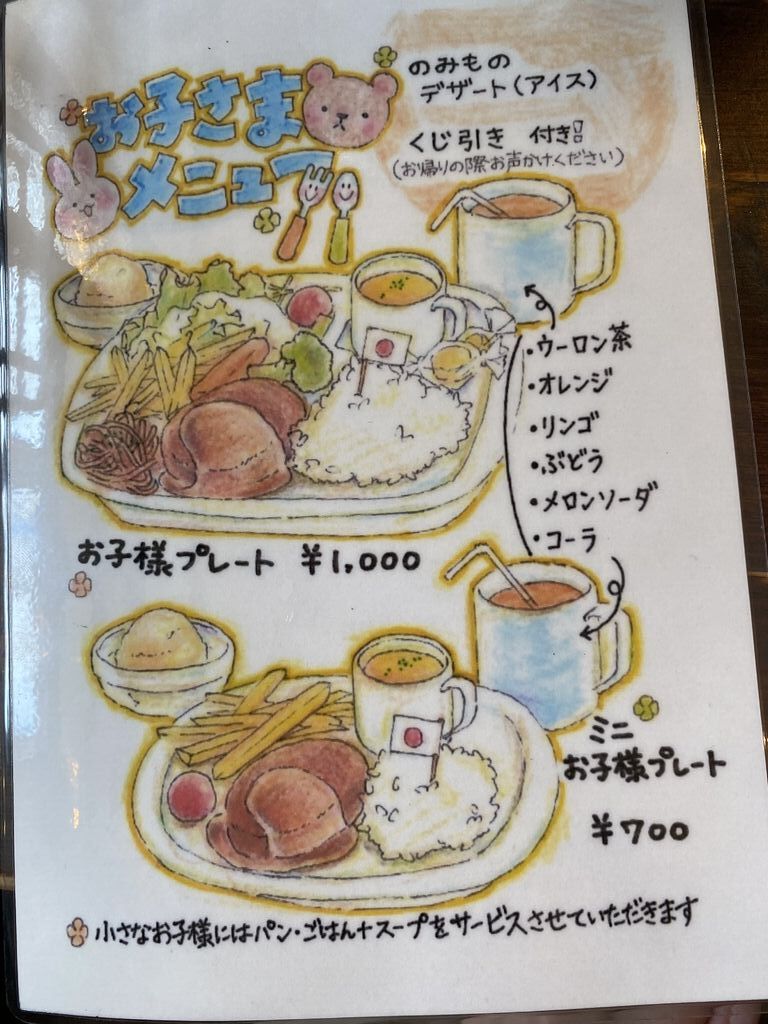 お子さま
メニュー
のみもの
デザート(アイス)
くじ引き 付き!!
(お帰りの際お声かけください)
・ウーロン茶
・オレンジ
・リンゴ
・ぶどう
・メロンソーダ
・コーラ
お子様プレート ¥1,000
ミニ
お子様プレート
¥700
小さなお子様にはパン・ごはん+スープをサービスさせていただきます